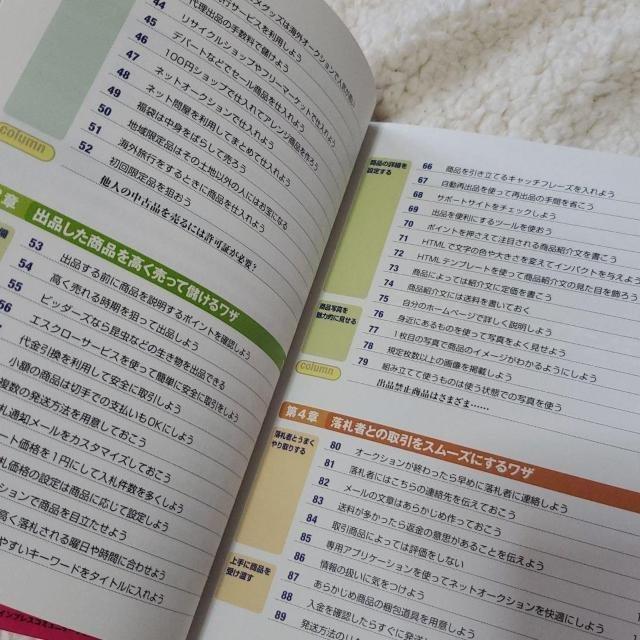 メグッズは海外オークションで入
44 代理出品の手数料で儲けよう
45 行サービスを利用しよう
46 リサイクルショップやフリーマーケットで仕入れよう
47 デパートなどでセール商品を仕入れよう
48 100円ショップで仕入れてアレンジ商品を作ろう
49 ネットオークションで仕入れよう
50 ネット問屋を利用してまとめて仕入れよう
51 福袋は中身をばらして売ろう
52 地域限定品はその土地以外の人にはお宝になる
海外旅行をするときに商品を仕入れよう
初回限定品を狙おう
column
他人の中古品を売るには許可証が必要?
章 出品した商品を高く売って儲けるワザ
53 出品する前に商品を説明するポイントを確認しよう
54 高く売れる時期を狙って出品しよう
55 ビッダーズなら昆虫などの生き物を出品できる
56 エスクローサービスを使って簡単に安全に取引をしよう
代金引換を利用して安全に取引しよう
小額の商品は切手での支払いもOKにしよう
複数の発送方法を用意しておこう
札通知メールをカスタマイズしておこう
ート価格を1円にして入札件数を多くしよう
札価格の設定は商品に応じて設定しよう
ションで商品を目立たせよう
高く落札される曜日や時間に合わせよう
やすいキーワードをタイトルに入れよう
インプレスコミュニ
商品の詳細を
設定する
66 商品を引き立てるキャッチフレーズを入れよう
67 自動再出品を使って再出品の手間を省こう
68 サポートサイトをチェックしよう
69 出品を便利にするツールを使おう
70 ポイントを押さえて注目される商品紹介文を書こう
71 HTMLで文字の色や大きさを変えてインパクトを与えよう
72 HTMLテンプレートを使って商品紹介文の見た目を飾ろう
73 商品によっては紹介文に定価を書こう
74 商品紹介文には送料を書いておく
75 自分のホームページで詳しく説明しよう
商品写真を
魅力的に見せる
76 身近にあるものを使って写真をよく見せよう
77 1枚目の写真で商品のイメージがわかるようにしよう
78 規定枚数以上の画像を掲載しよう
79 組み立てて使うものは使う状態での写真を使う
column
出品禁止商品はさまざま……
第4章 落札者との取引をスムーズにするワザ
落札者とうまく
やり取りする
80 オークションが終わったら早めに落札者に連絡しよう
81 落札者にはこちらの連絡先を伝えておこう
82 メールの文章はあらかじめ作っておこう
83 送料が多かったら返金の意思があることを伝えよう
84 取引商品によっては評価をしない
85 専用アプリケーションを使ってネットオークションを快適にしよう
86 情報の扱いに気をつけよう
上手に商品を
受け渡す
87 あらかじめ商品の梱包道具を用意しよう
88 入金を確認したらすぐに発送
89 発送方法の